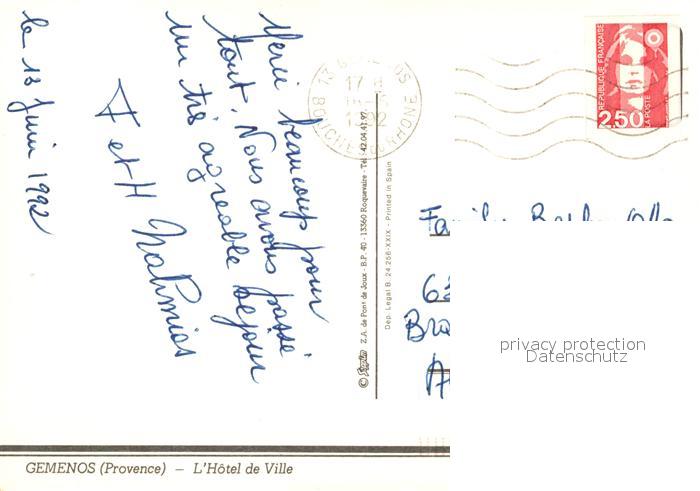 le 13 Juin 1992
Merci beaucoup pour
tout. Nous avons passé
un très agreable séjour
F et H Nahmias
13 G
OS
17 H
1992
BOUCHES DU RHONE
REPUBLIQUE FRANÇAISE
2,50
LA POSTE
© Z.A. de Pont de Joux - B.P. 40 - 13360 Roquevaire - Tél. 42.04.41.97
Dep. Legal B. 24.256-XXIX - Printed in Spain
privacy protection
Datenschutz
GEMENOS (Provence) – L'Hôtel de Ville